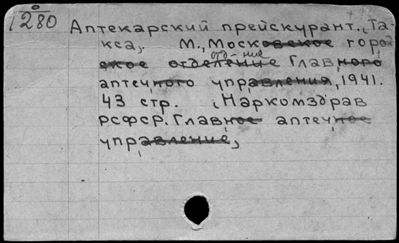 1280
Аптекарский прейскурант. (Та-
кса). М., Московское город-
отд-ние
ское отделение Главного
аптечного управления, 1941.
43 стр. (Наркомздрав
РСФСР. Главное аптечное
управление)